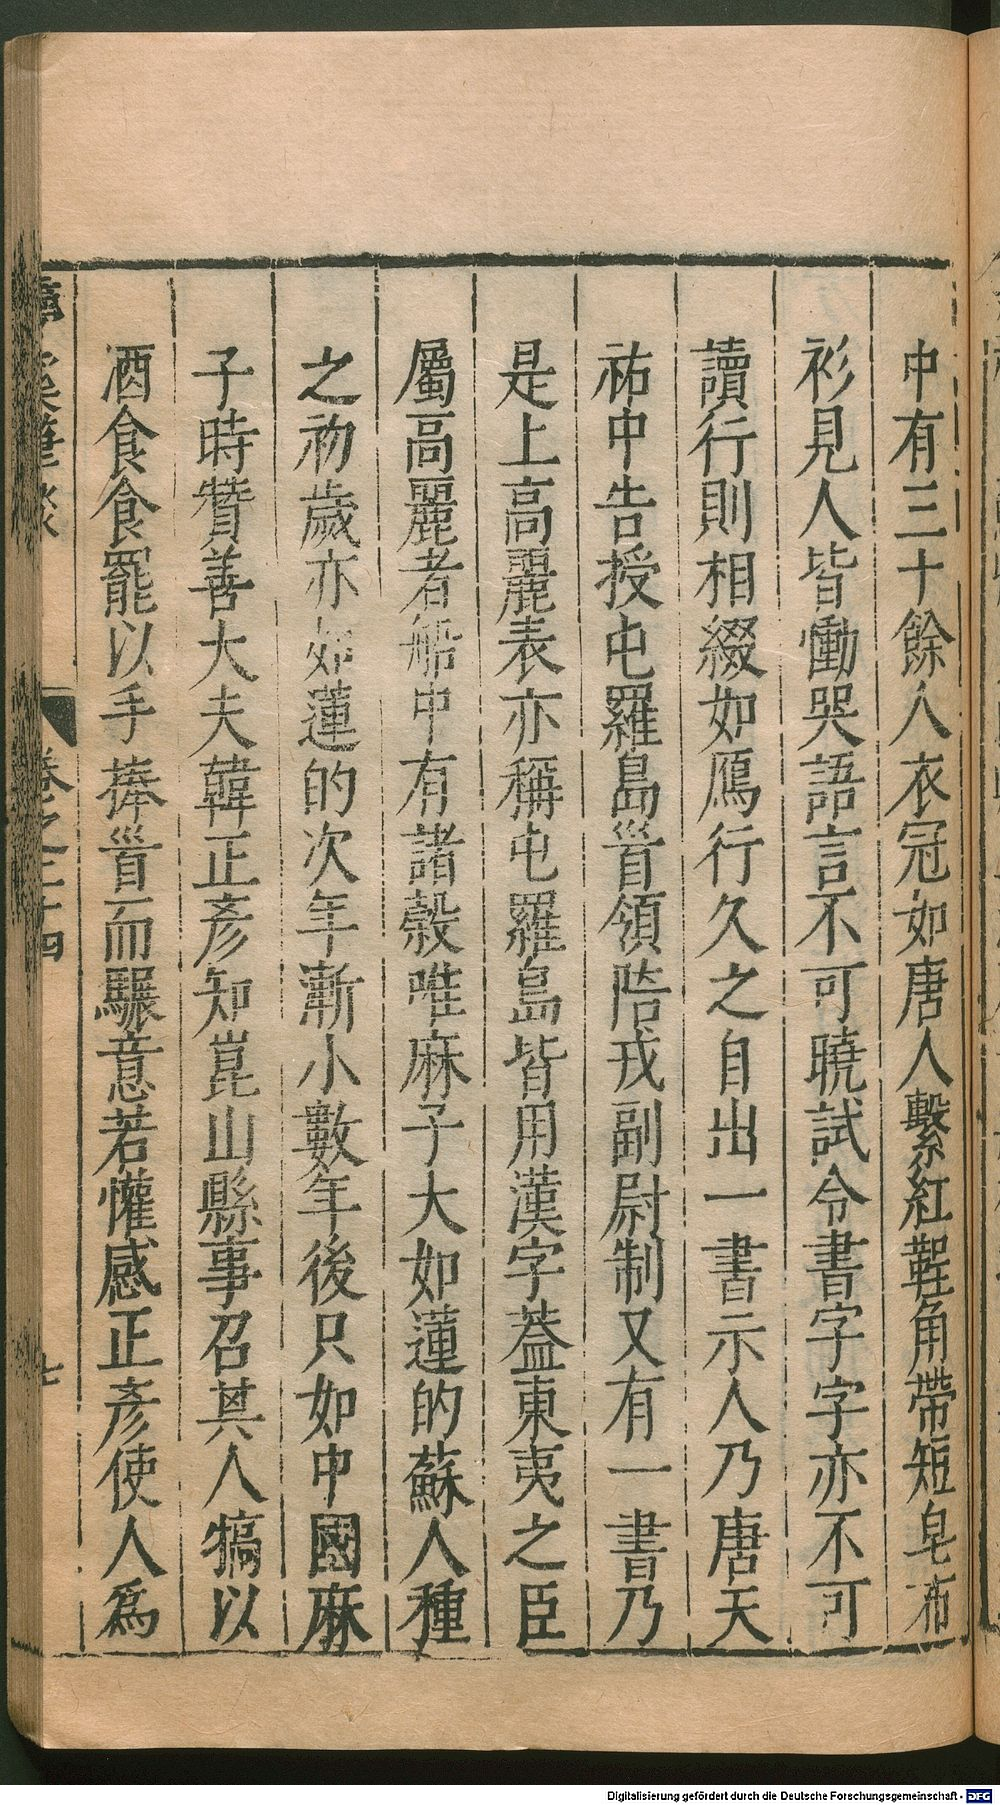 中有三十餘人衣冠如唐人繫紅鞓角帶短皂布
衫見人皆慟哭語言不可曉試令書字字亦不可
讀行則相綴如鴈行久之自出一書示人乃唐天
祐中告授屯羅島首領陪戎副尉制又有一書乃
是上高麗表亦稱屯羅島皆用漢字葢東夷之臣
屬高麗者船中有諸穀唯麻子大如蓮的蘇人種
之初歲亦如蓮的次年漸小數年後只如中國麻
子時贊善大夫韓正彥知崑山縣事召其人犒以
酒食食罷以手捧首而驟意若懽感正彥使人爲
筆談
卷之二十四
七
Digitalisierung gefördert durch die Deutsche Forschungsgemeinschaft - DFG